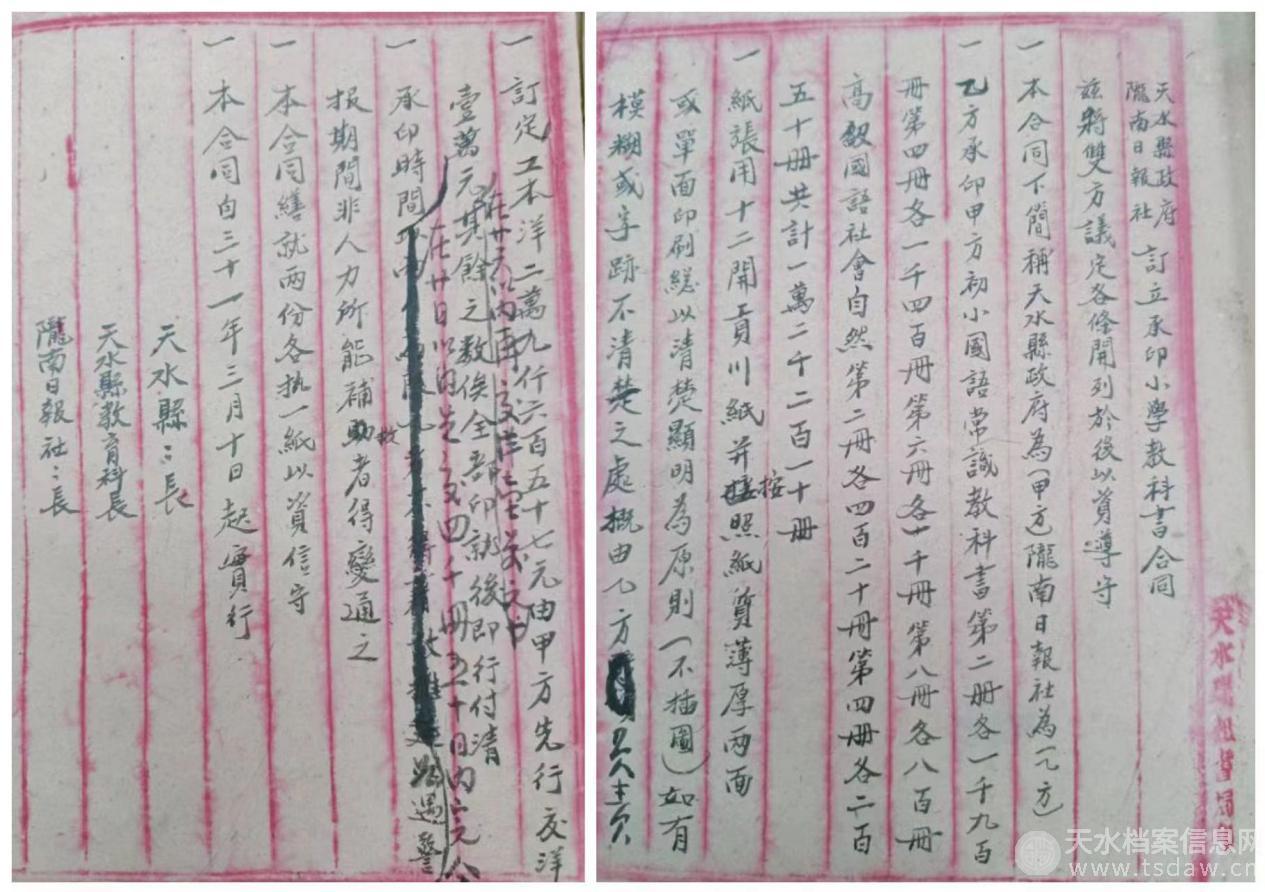 天水縣政府
隴南日報社
訂立承印小學教科書合同
茲將雙方議定各條開列於後以資遵守
一 本合同下簡稱天水縣政府為(甲方)隴南日報社為(乙方)
一 乙方承印甲方初小國語常識教科書第二册各一千九百
册第四册各一千四百册第六册各一千册第八册各八百册
高級國語社會自然第二册各四百二十册第四册各二百
五十册共計一萬二千二百一十册
一 紙張用十二開貢川紙并按照紙質薄厚兩面
或單面印刷總以清楚顯明為原則(不插圖)如有
模糊或字跡不清楚之處概由乙方負責
一 訂定工本洋二萬九仟六百五十七元由甲方先行交洋
壹萬元其餘之數俟全部印就後即行付清
一 承印時間
在廿日以内先交四千册五十日内
遇警
報期間非人力所能補救者得變通之
一 本合同繕就兩份各执一紙以資信守
一 本合同自三十一年三月十日起實行
天水縣:長
天水縣教育科長
隴南日報社:長
天水档案信息网
www.tsdaw.cn